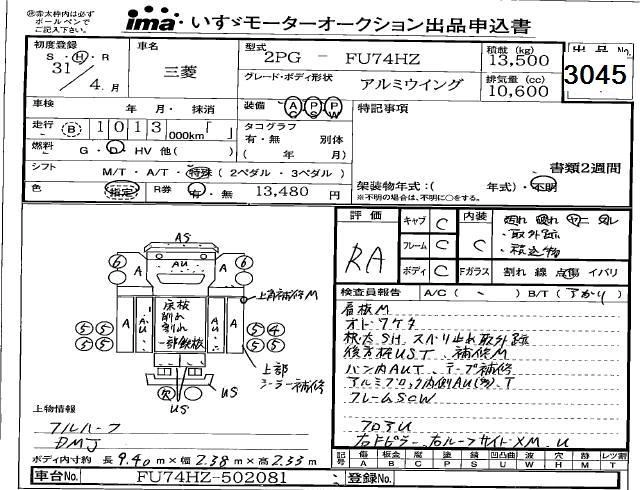 ※赤太枠内は必ずボールペンでご記入下さい。
ima いすゞモーターオークション出品申込書
初度登録 S・H・R 31 / 4.月
車名 三菱
型式 2PG - FU74HZ
積載 (kg) 13,500
出品No. 3045
グレード・ボディ形状 アルミウイング
排気量 (cc) 10,600
車検 年 月・抹消
装備 AC PS PW
特記事項
走行 B 1013 000km「 」
タコグラフ 有・無 別体 ( 年 )
燃料 G・D・HV 他( )
書類2週間
シフト M/T・A/T・特殊(2ペダル・3ペダル)
架装物年式:( 年式)・不明
※不明の場合は、不明に○をする。
色 指定 R券 有・無 13,480 円
評価 RA
キャブ C
フレーム C
ボディ C
内装 C
切れ 破れ ヤニ スレ
・取外跡
・積込物
Fガラス 割れ 線 点傷 イバリ
検査員報告 A/C ( - ) B/T (アカリ)
看板M
オドワケタ
根太SH スベリ止れ取外跡
後方板UST、補修M
バン内AUT、テープ補修
アルミブロック内側AU(多)、T
フレームSCW
フロアU
右Fピラー、右ルーフサイドXM、U
AS
AU
6 A A 6
床板
削れ
割れ
一部鉄板
A AU AU A
5 5 5 4
5 5 5 5
上角補修M
上部
シーラー補修
欠
US US
上物情報
フルハーフ
DMJ
ボディ内寸約 長 9.40 m×幅 2.38 m×高 2.53 m
記号 傷A 板金B 腐C 塗P 錆S 凹凸曲U 波W 穴H 跡M 破T レツ割T
車台No. FU74HZ-502081 登録No.